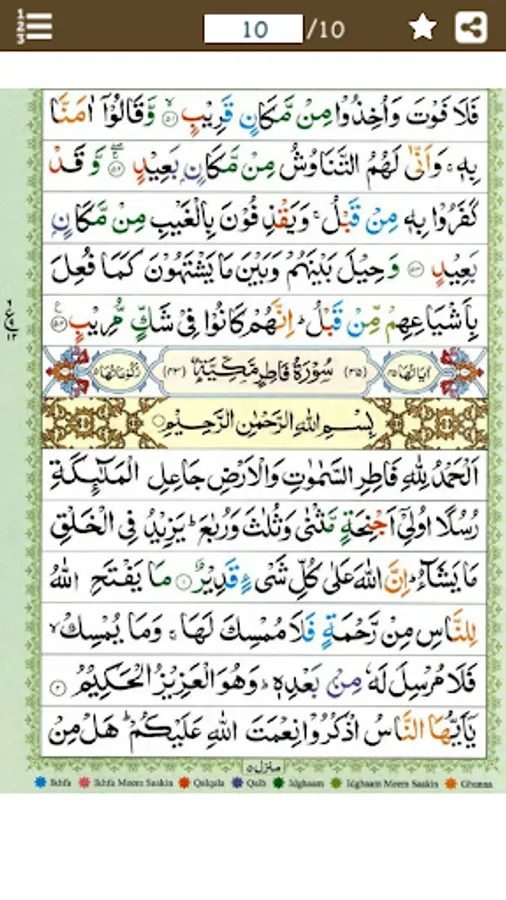 10 /10
فَلَا فَوْتَ وَاُخِذُوْا مِنْ مَّكَانٍ قَرِيْبٍ ۙ۵۱ وَّقَالُوْۤا اٰمَنَّا
بِهٖ ۚ وَاَنّٰى لَهُمُ التَّنَاوُشُ مِنْ مَّكَانٍۭ بَعِيْدٍ ۚۖ۵۲ وَّقَدْ
كَفَرُوْا بِهٖ مِنْ قَبْلُ ۚ وَيَقْذِفُوْنَ بِالْغَيْبِ مِنْ مَّكَانٍۭ
بَعِيْدٍ ۵۳ وَحِيْلَ بَيْنَهُمْ وَبَيْنَ مَا يَشْتَهُوْنَ كَمَا فُعِلَ
بِاَشْيَاعِهِمْ مِّنْ قَبْلُ ؕ اِنَّهُمْ كَانُوْا فِىْ شَكٍّ مُّرِيْبٍ ۵۴
اٰيَاتُهَا ۴۵ (۳۵) سُوْرَةُ فَاطِرٍ مَّكِّيَّةٌ (۴۳) رُكُوْعَاتُهَا ۵
بِسْمِ اللّٰهِ الرَّحْمٰنِ الرَّحِيْمِ
اَلْحَمْدُ لِلّٰهِ فَاطِرِ السَّمٰوٰتِ وَالْاَرْضِ جَاعِلِ الْمَلٰٓئِكَةِ
رُسُلًا اُولِىْۤ اَجْنِحَةٍ مَّثْنٰى وَثُلٰثَ وَرُبٰعَ ؕ يَزِيْدُ فِى الْخَلْقِ
مَا يَشَآءُ ؕ اِنَّ اللّٰهَ عَلٰى كُلِّ شَىْءٍ قَدِيْرٌ ۱ مَا يَفْتَحِ اللّٰهُ
لِلنَّاسِ مِنْ رَّحْمَةٍ فَلَا مُمْسِكَ لَهَا ۚ وَمَا يُمْسِكْ ۙ
فَلَا مُرْسِلَ لَهٗ مِنْۢ بَعْدِهٖ ؕ وَهُوَ الْعَزِيْزُ الْحَكِيْمُ ۲
يٰۤاَيُّهَا النَّاسُ اذْكُرُوْا نِعْمَتَ اللّٰهِ عَلَيْكُمْ ؕ هَلْ مِنْ
منزل ۵
Ikhfa Ikhfa Meem Saakin Qalqala Qalb Idghaam Idghaam Meem Saakin Ghunna